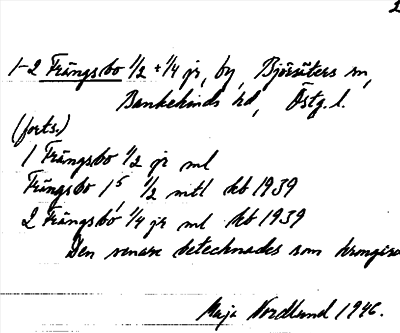 2
1-2 Frängsbo 1/2 + 1/4 jr, by, Björsäters sn,
Bankekinds hd, Östg. l.
(forts.)
1 Frängsbo 1/2 jr ml
Frängsbo 1⁵, 1/2 mtl Jb 1939
2 Frängsbo 1/4 jr ml Jb 1939
Den senare betecknades som
Maja Nordlund 1946.